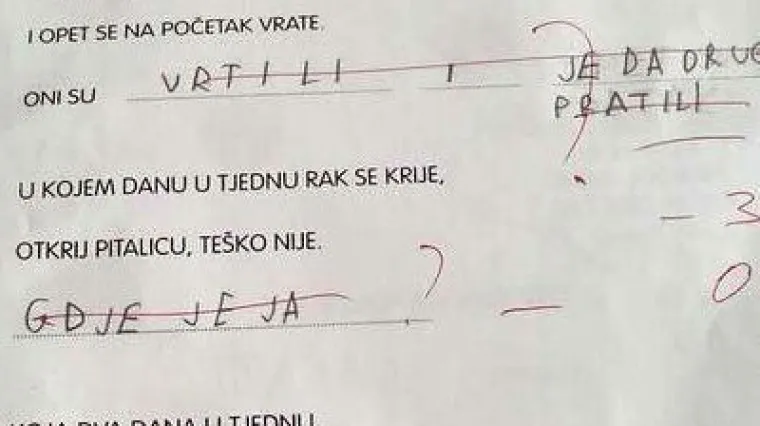 I OPET SE NA POČETAK VRATE.
ONI SU VRTILI I JE DA DRUG
PRATILI
U KOJEM DANU U TJEDNU RAK SE KRIJE,
- 3
OTKRIJ PITALICU, TEŠKO NIJE.
GDJE JE JA ? - 0
KOJA DVA DANA U TJEDNU